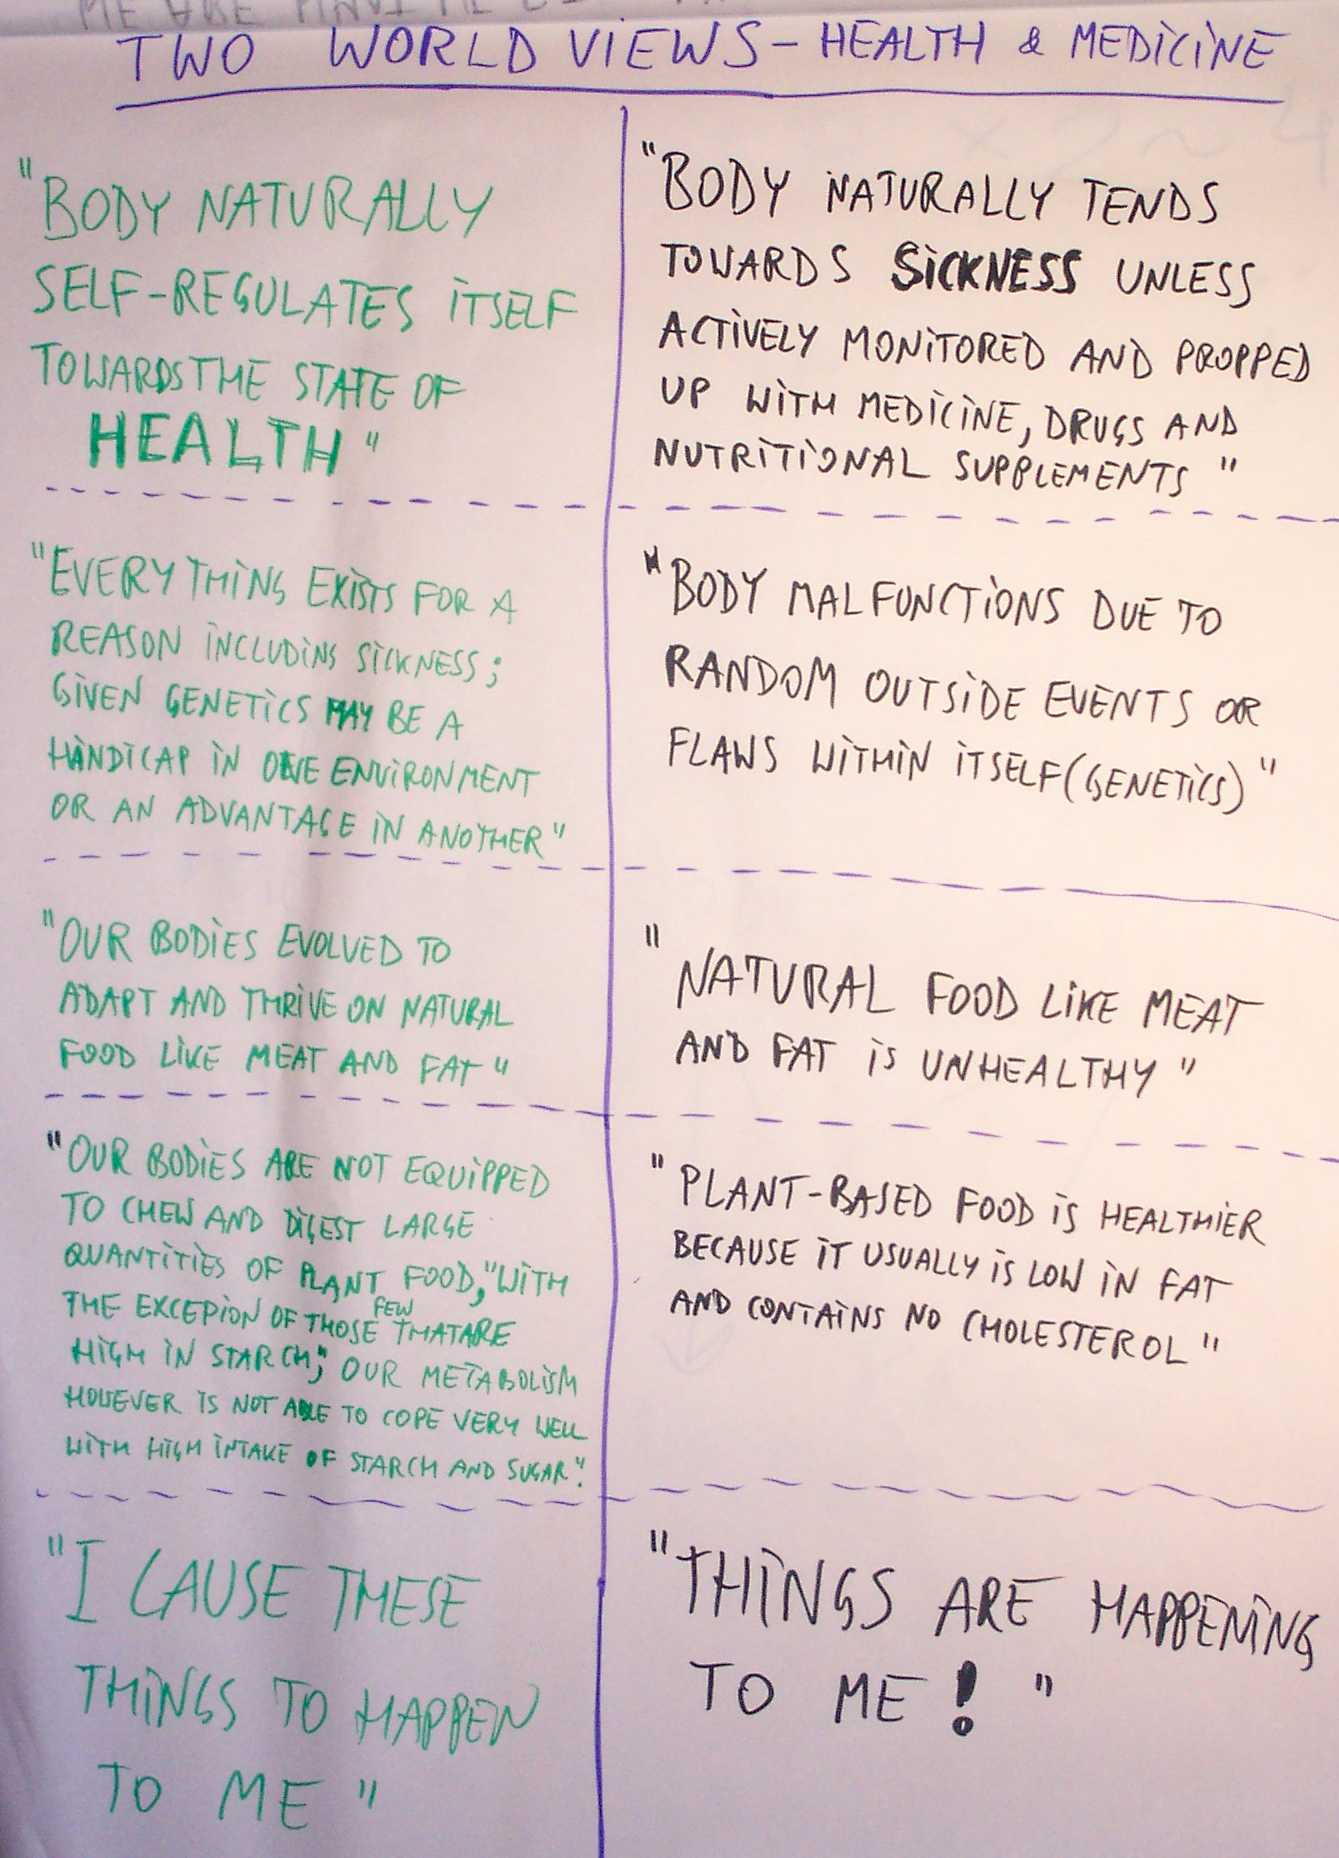 TWO WORLD VIEWS - HEALTH & MEDICINE
"BODY NATURALLY
SELF-REGULATES ITSELF
TOWARDS THE STATE OF
HEALTH"
"BODY NATURALLY TENDS
TOWARDS SICKNESS UNLESS
ACTIVELY MONITORED AND PROPPED
UP WITH MEDICINE, DRUGS AND
NUTRITIONAL SUPPLEMENTS"
"EVERYTHING EXISTS FOR A
REASON INCLUDING SICKNESS;
GIVEN GENETICS MAY BE A
HANDICAP IN ONE ENVIRONMENT
OR AN ADVANTAGE IN ANOTHER"
"BODY MALFUNCTIONS DUE TO
RANDOM OUTSIDE EVENTS OR
FLAWS WITHIN ITSELF (GENETICS)"
"OUR BODIES EVOLVED TO
ADAPT AND THRIVE ON NATURAL
FOOD LIKE MEAT AND FAT"
"NATURAL FOOD LIKE MEAT
AND FAT IS UNHEALTHY"
"OUR BODIES ARE NOT EQUIPPED
TO CHEW AND DIGEST LARGE
QUANTITIES OF PLANT FOOD, "WITH
THE EXCEPION OF THOSE FEW THAT ARE
HIGH IN STARCH;" OUR METABOLISM
HOWEVER IS NOT ABLE TO COPE VERY WELL
WITH HIGH INTAKE OF STARCH AND SUGAR".
"PLANT-BASED FOOD IS HEALTHIER
BECAUSE IT USUALLY IS LOW IN FAT
AND CONTAINS NO CHOLESTEROL"
"I CAUSE THESE
THINGS TO HAPPEN
TO ME"
"THINGS ARE HAPPENING
TO ME!"